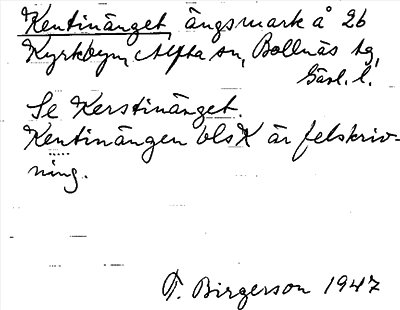 Kentinänget, ängsmark å 26
Kyrkbyn, Alfta sn, Bollnäs tg,
Gävl. l.
Se Kerstinänget.
Kentinängen bls K är felskriv-
ning.
T. Birgerson 1947